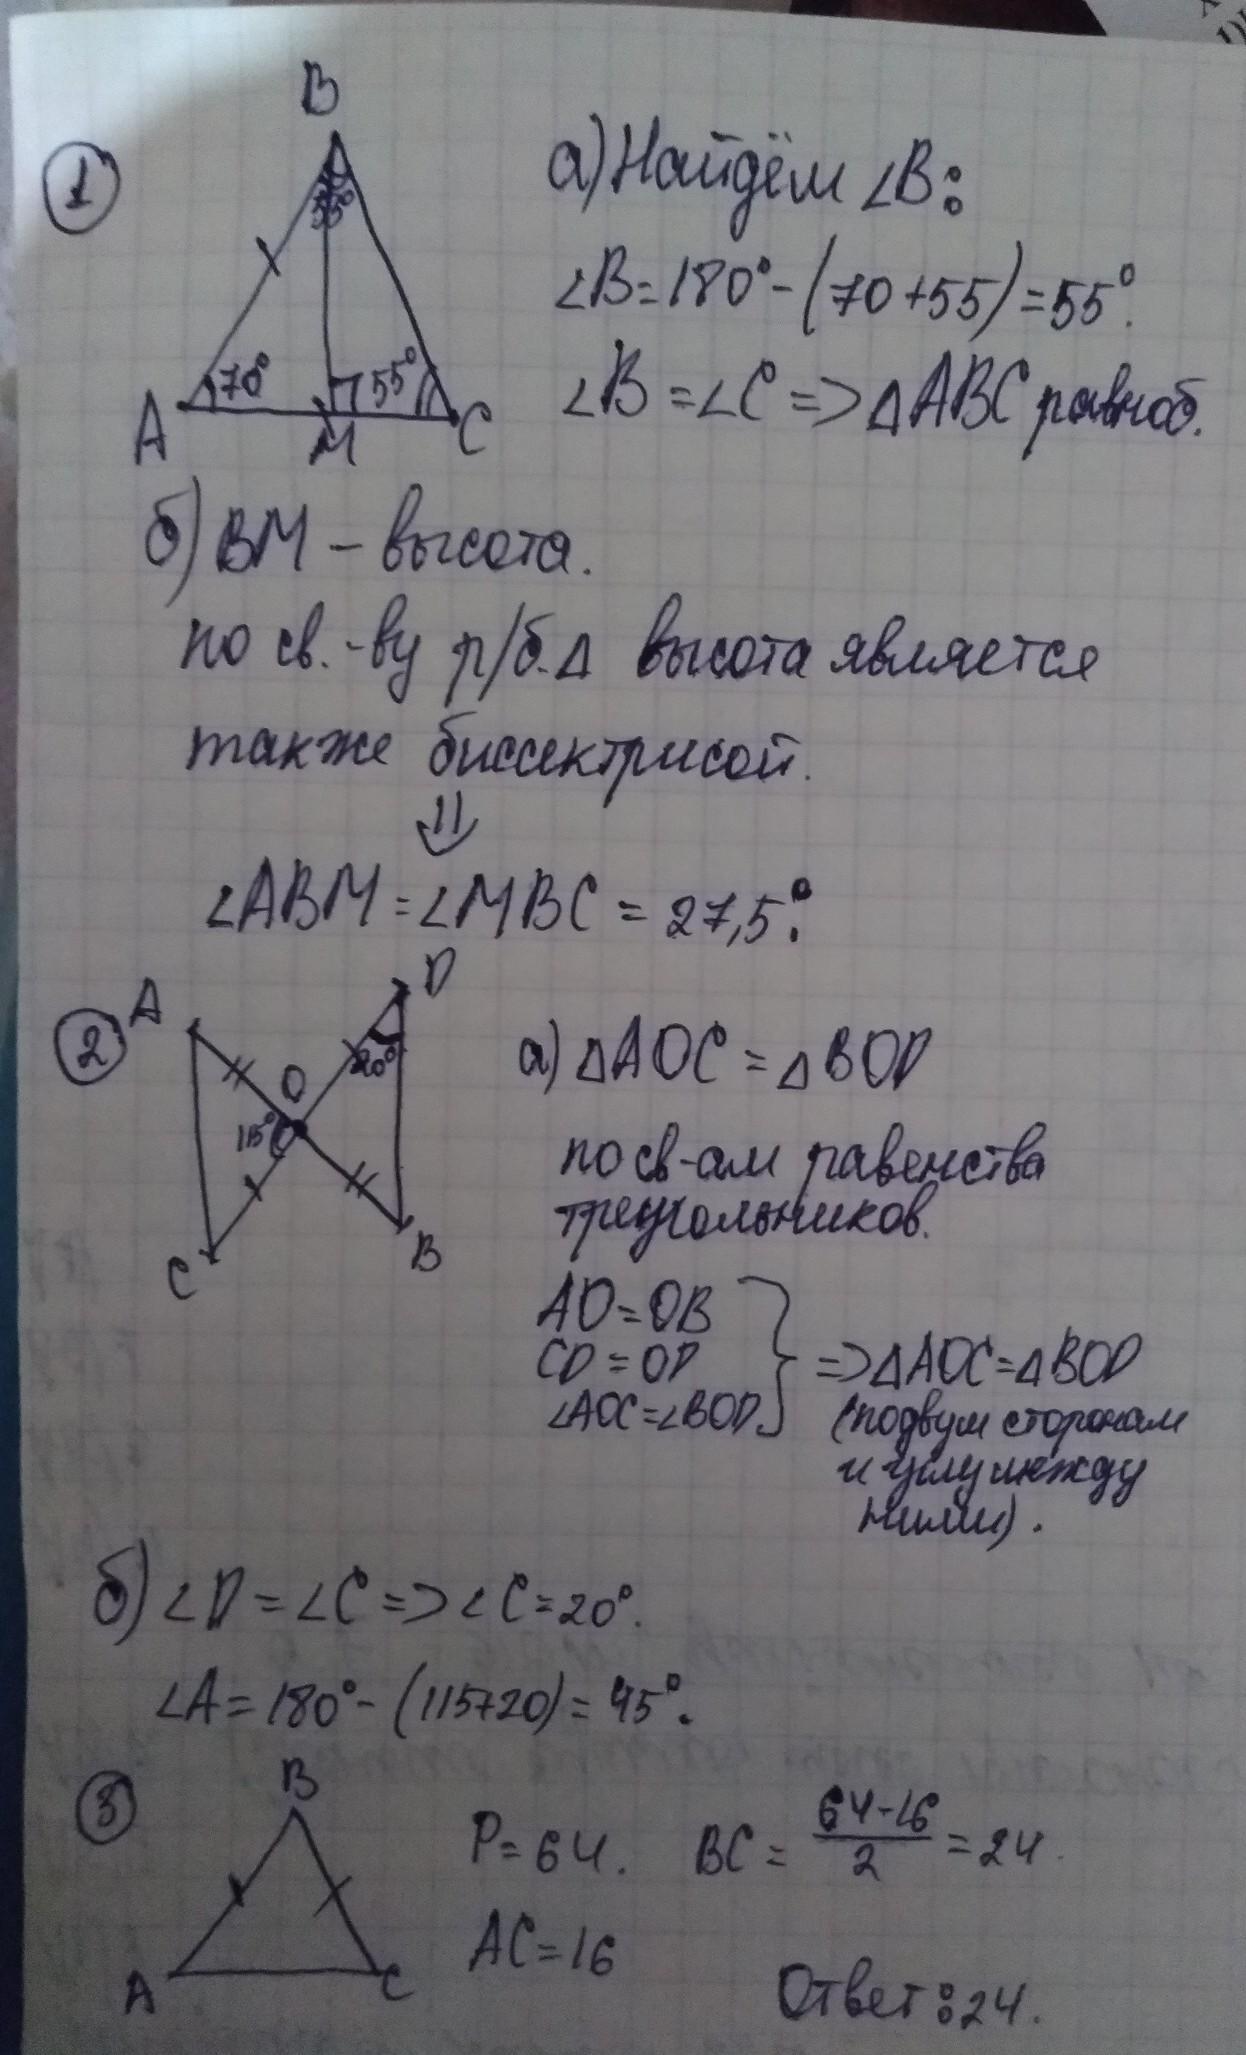 1
B
55°
70°
55°
A
M
C
а) Найдём ∠B:
∠B = 180° - (70 + 55) = 55°.
∠B = ∠C => △ABC равноб.
б) BM - высота.
по св.-ву р/б.△ высота является
также биссектрисой.
⇓
∠ABM = ∠MBC = 27,5°.
2
A
D
O
20°
115°
C
B
а) △AOC = △BOD
по св-ам равенства
треугольников.
AO = OB
CO = OD
∠AOC = ∠BOD
=> △AOC = △BOD
(по двум сторонам
и углу между
ними).
б) ∠D = ∠C => ∠C = 20°.
∠A = 180° - (115+20) = 45°.
3
B
A
C
P = 64. BC = (64-16)/2 = 24.
AC = 16
Ответ: 24.